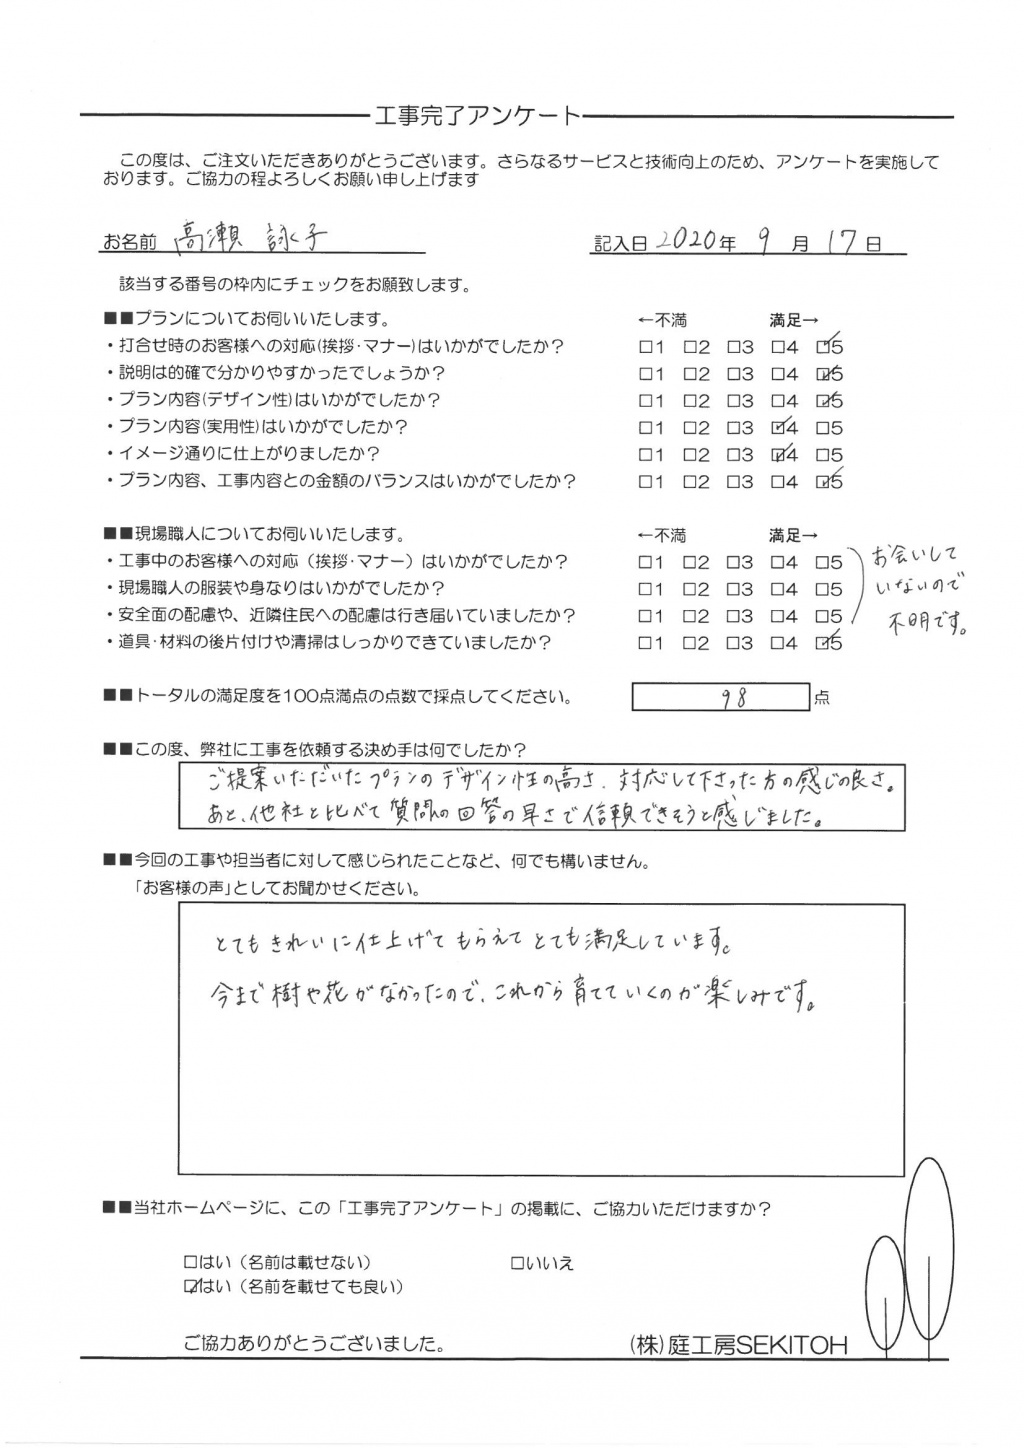 工事完了アンケート
この度は、ご注文いただきありがとうございます。さらなるサービスと技術向上のため、アンケートを実施して
おります。ご協力の程よろしくお願い申し上げます
お名前 高瀬 詠子 記入日 2020年 9 月 17 日
該当する番号の枠内にチェックをお願致します。
■■プランについてお伺いいたします。 ←不満 満足→
・打合せ時のお客様への対応(挨拶･マナー)はいかがでしたか？ □1 □2 □3 □4 ☑5
・説明は的確で分かりやすかったでしょうか？ □1 □2 □3 □4 ☑5
・プラン内容(デザイン性)はいかがでしたか？ □1 □2 □3 □4 ☑5
・プラン内容(実用性)はいかがでしたか？ □1 □2 □3 ☑4 □5
・イメージ通りに仕上がりましたか？ □1 □2 □3 ☑4 □5
・プラン内容、工事内容との金額のバランスはいかがでしたか？ □1 □2 □3 □4 ☑5
■■現場職人についてお伺いいたします。 ←不満 満足→
・工事中のお客様への対応（挨拶･マナー）はいかがでしたか？ □1 □2 □3 □4 □5
・現場職人の服装や身なりはいかがでしたか？ □1 □2 □3 □4 □5
・安全面の配慮や、近隣住民への配慮は行き届いていましたか？ □1 □2 □3 □4 □5
・道具･材料の後片付けや清掃はしっかりできていましたか？ □1 □2 □3 □4 ☑5
お会いして
いないので
不明です。
■■トータルの満足度を100点満点の点数で採点してください。 98 点
■■この度、弊社に工事を依頼する決め手は何でしたか？
ご提案いただいたプランのデザイン性の高さ、対応して下さった方の感じの良さ。
あと、他社と比べて質問の回答の早さで信頼できそうと感じました。
■■今回の工事や担当者に対して感じられたことなど、何でも構いません。
「お客様の声」としてお聞かせください。
とてもきれいに仕上げてもらえてとても満足しています。
今まで樹や花がなかったので、これから育てていくのが楽しみです。
■■当社ホームページに、この「工事完了アンケート」の掲載に、ご協力いただけますか？
□はい（名前は載せない） □いいえ
☑はい（名前を載せても良い）
ご協力ありがとうございました。 (株)庭工房SEKITOH